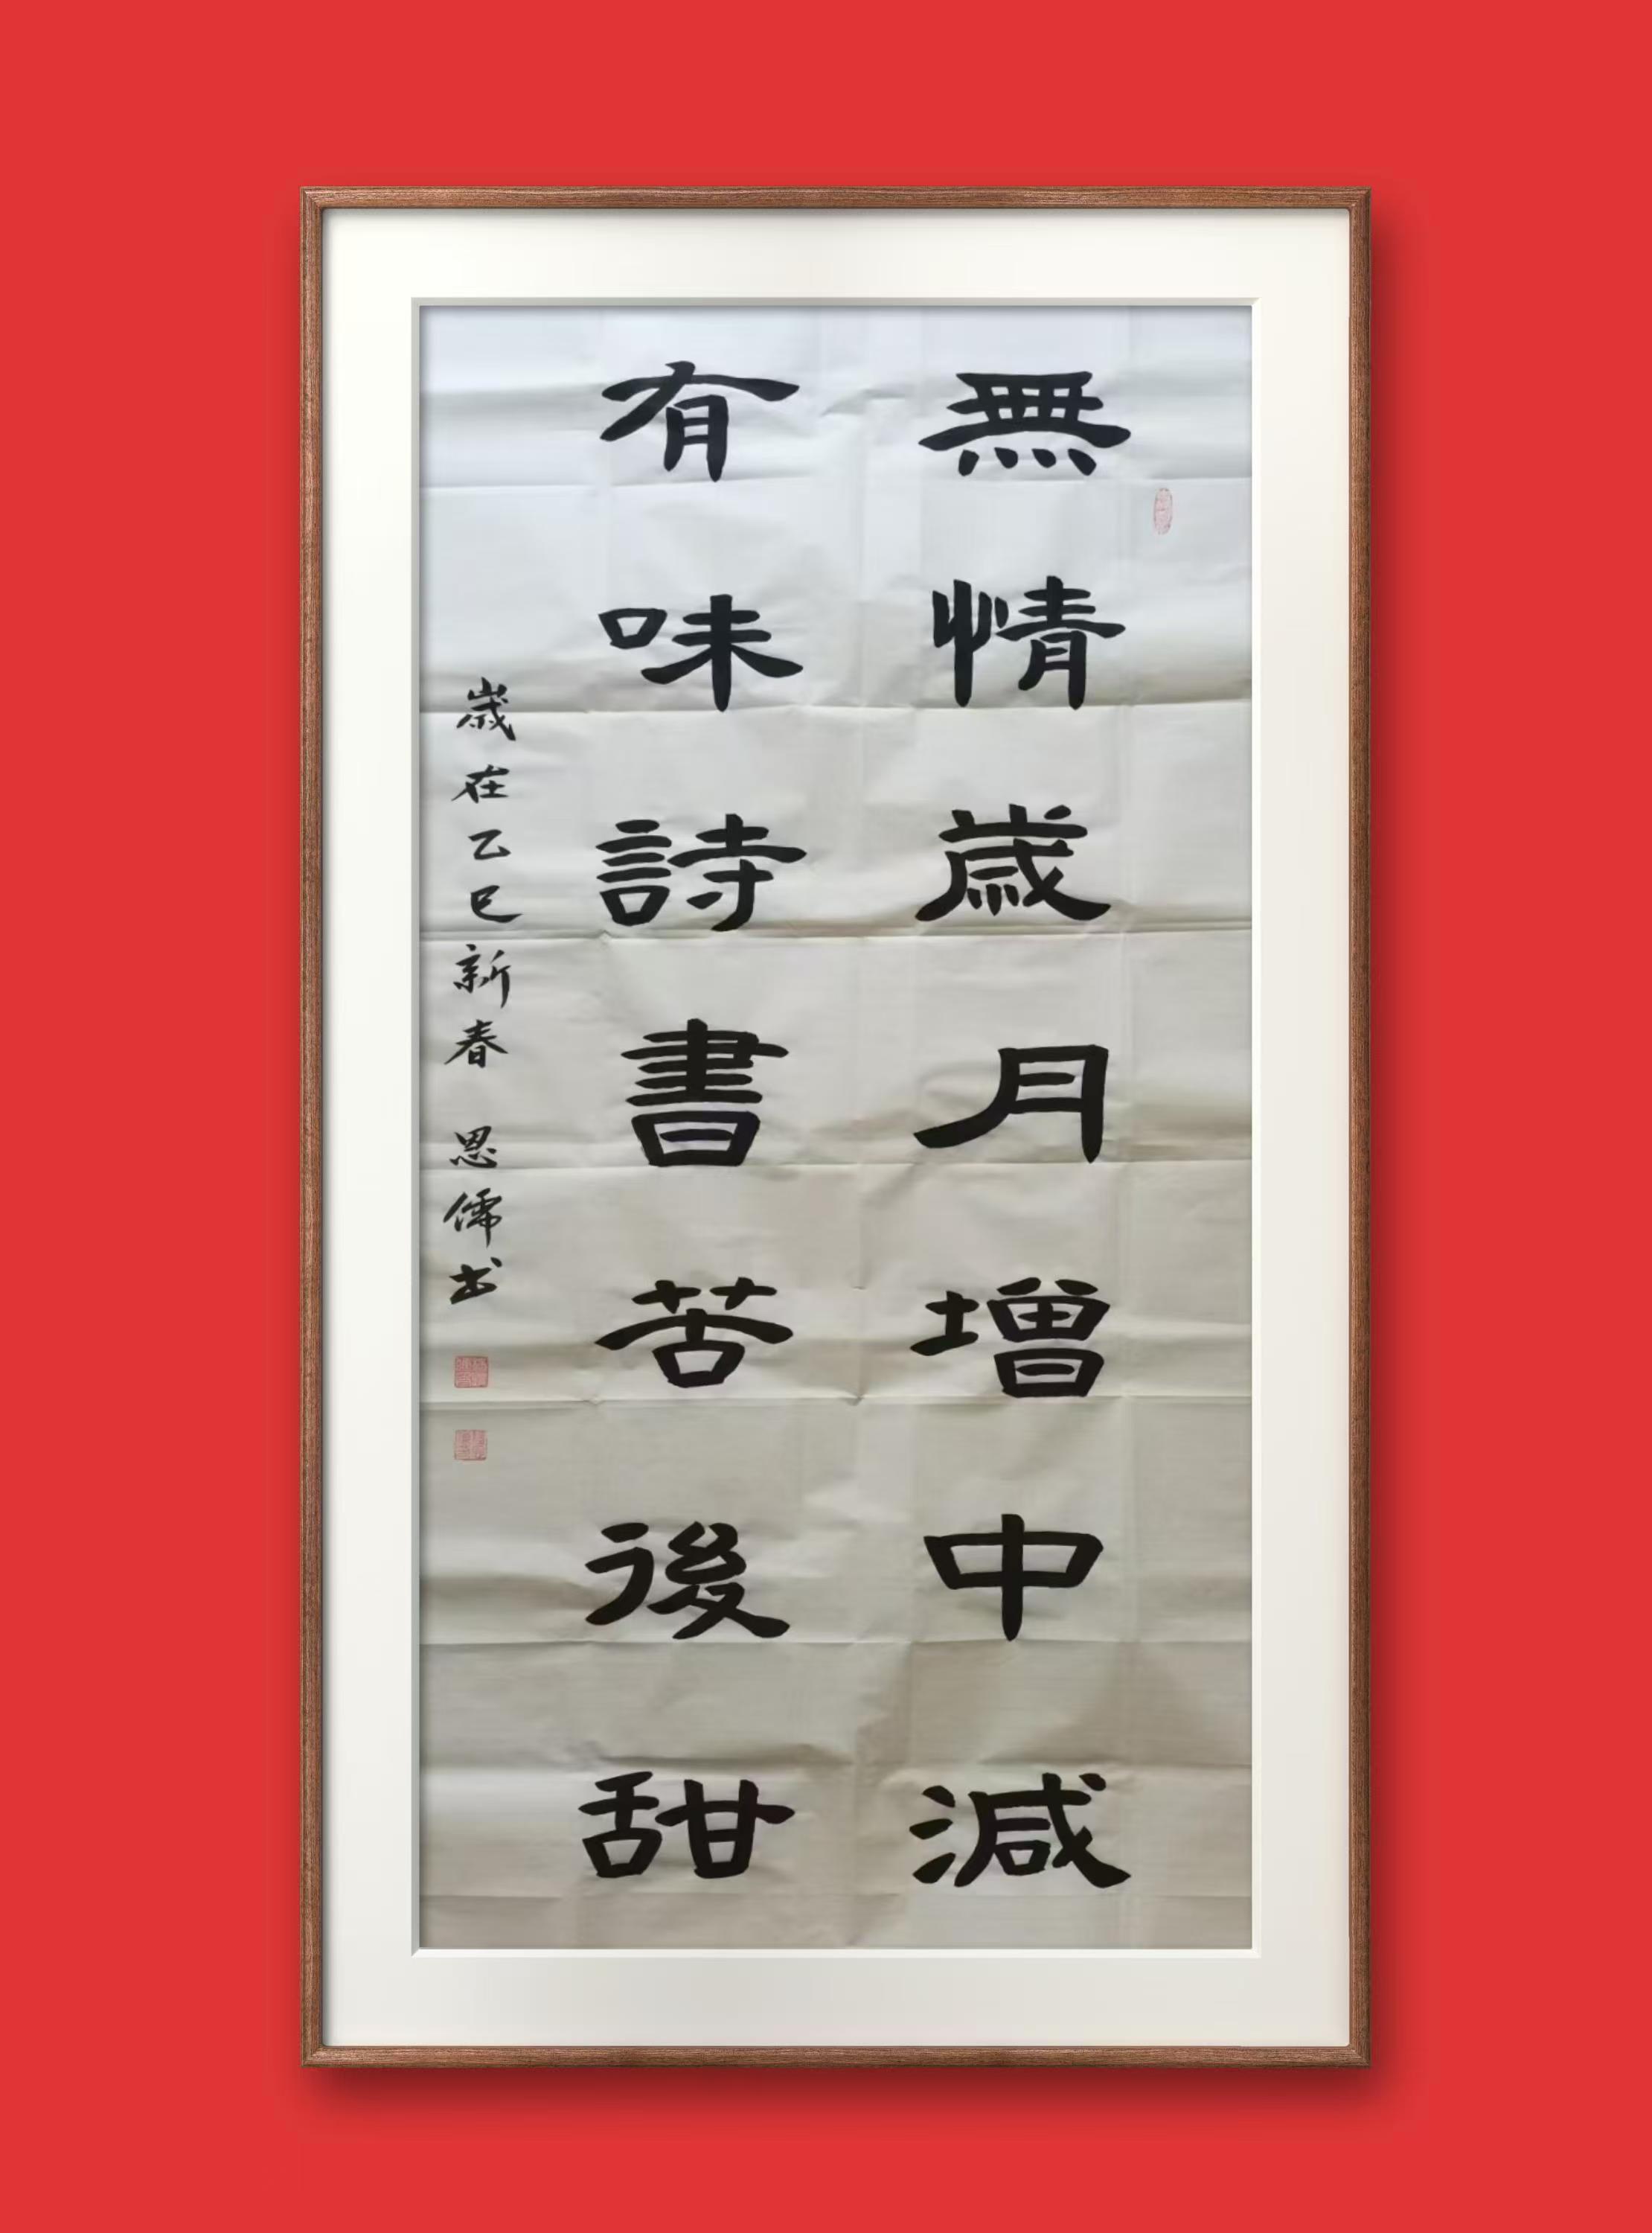 無情歲月增中減
有味詩書苦後甜
歲在乙巳新春 思儒书